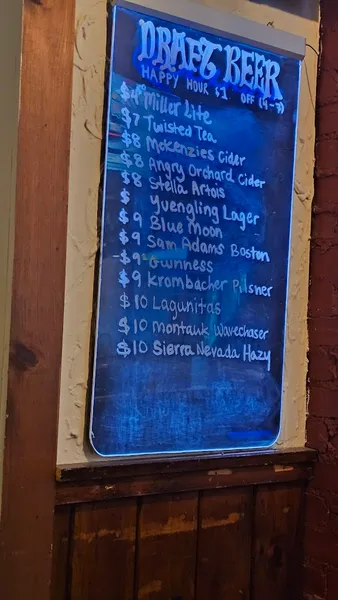 DRAFT BEER
HAPPY HOUR $1 OFF (4-7)
Miller Lite
$7 Twisted Tea
$8 Mckenzies Cider
$8 Angry Orchard Cider
$8 Stella Artois
$ Yuengling Lager
$9 Blue Moon
$9 Sam Adams Boston
$9 Guinness
$9 Krombacher Pilsner
$10 Lagunitas
$10 Montauk Wavechaser
$10 Sierra Nevada Hazy